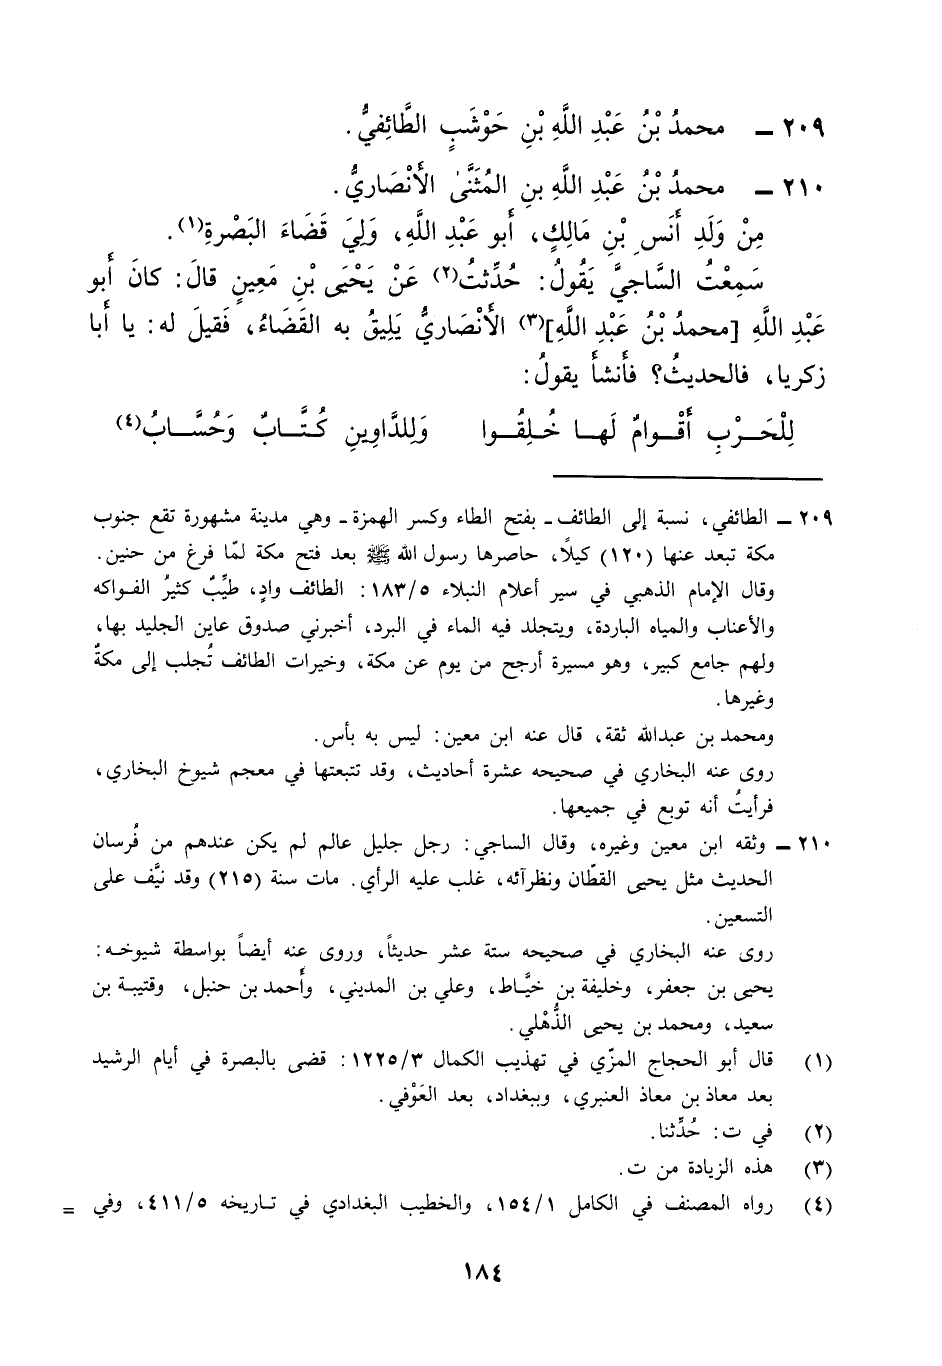 ٢٠٩ ــ محمدُ بْنُ عَبْدِ اللَّهِ بْنِ حَوْشَبٍ الطَّائِفيُّ.
٢١٠ ــ محمدُ بْنُ عَبْدِ اللَّهِ بنِ المُثَنَّىٰ الأَنْصَاريُّ.
مِنْ وَلَدِ أَنَسِ بْنِ مَالِكٍ، أَبو عَبْدِ اللَّهِ، وَلِيَ قَضَاءَ البَصْرةِ(١).
سَمِعْتُ السَّاجيَّ يَقُولُ: حُدِّثتُ(٢) عَنْ يَحْيَى بْنِ مَعِينٍ قالَ: كانَ أَبو
عَبْدِ اللَّهِ [محمدُ بْنُ عَبْدِ اللَّهِ](٣) الأَنْصَاريُّ يَلِيقُ به القَضَاءُ، فَقيلَ له: يا أَبا
زكريا، فالحديثُ؟ فأَنشأَ يقولُ:
لِلْحَـرْبِ أَقْـوامٌ لَهـا خُـلِقُـوا وَلِلدَّاوِينِ كُتَّـابٌ وَحُسَّـابُ(٤)
٢٠٩ ــ الطائفي، نسبة إلى الطائف ـ بفتح الطاء وكسر الهمزة ـ وهي مدينة مشهورة تقع جنوب
مكة تبعد عنها (١٢٠) كيلًا، حاصرها رسول الله ﷺ بعد فتح مكة لمّا فرغ من حنين.
وقال الإمام الذهبي في سير أعلام النبلاء ١٨٣/٥: الطائف وادٍ، طيِّبٌ كثيرُ الفواكه
والأعناب والمياه الباردة، ويتجلد فيه الماء في البرد، أخبرني صدوق عاين الجليد بها،
ولهم جامع كبير، وهو مسيرة أرجح من يوم عن مكة، وخيرات الطائف تُجلب إلى مكةَ
وغيرها.
ومحمد بن عبدالله ثقة، قال عنه ابن معين: ليس به بأس.
روى عنه البخاري في صحيحه عشرة أحاديث، وقد تتبعتها في معجم شيوخ البخاري،
فرأيتُ أنه توبع في جميعها.
٢١٠ ــ وثقه ابن معين وغيره، وقال الساجي: رجل جليل عالم لم يكن عندهم من فُرسان
الحديث مثل يحيى القطّان ونظرآئه، غلب عليه الرأي. مات سنة (٢١٥) وقد نيَّف على
التسعين.
روى عنه البخاري في صحيحه ستة عشر حديثاً، وروى عنه أيضاً بواسطة شيوخـه:
يحيى بن جعفر، وخليفة بن خيَّـاط، وعلي بن المديني، وأَحمد بن حنبل، وقتيبـة بن
سعيد، ومحمد بن يحيى الذُّهْلي.
(١) قال أبو الحجاج المزّي في تهذيب الكمال ١٢٢٥/٣: قضى بالبصرة في أيام الرشيد
بعد معاذ بن معاذ العنبري، وببغداد، بعد العَوْفي.
(٢) في ت: حُدِّثنا.
(٣) هذه الزيادة من ت.
(٤) رواه المصنف في الكامل ١٥٤/١، والخطيب البغدادي في تـاريخه ٤١١/٥، وفي =
١٨٤